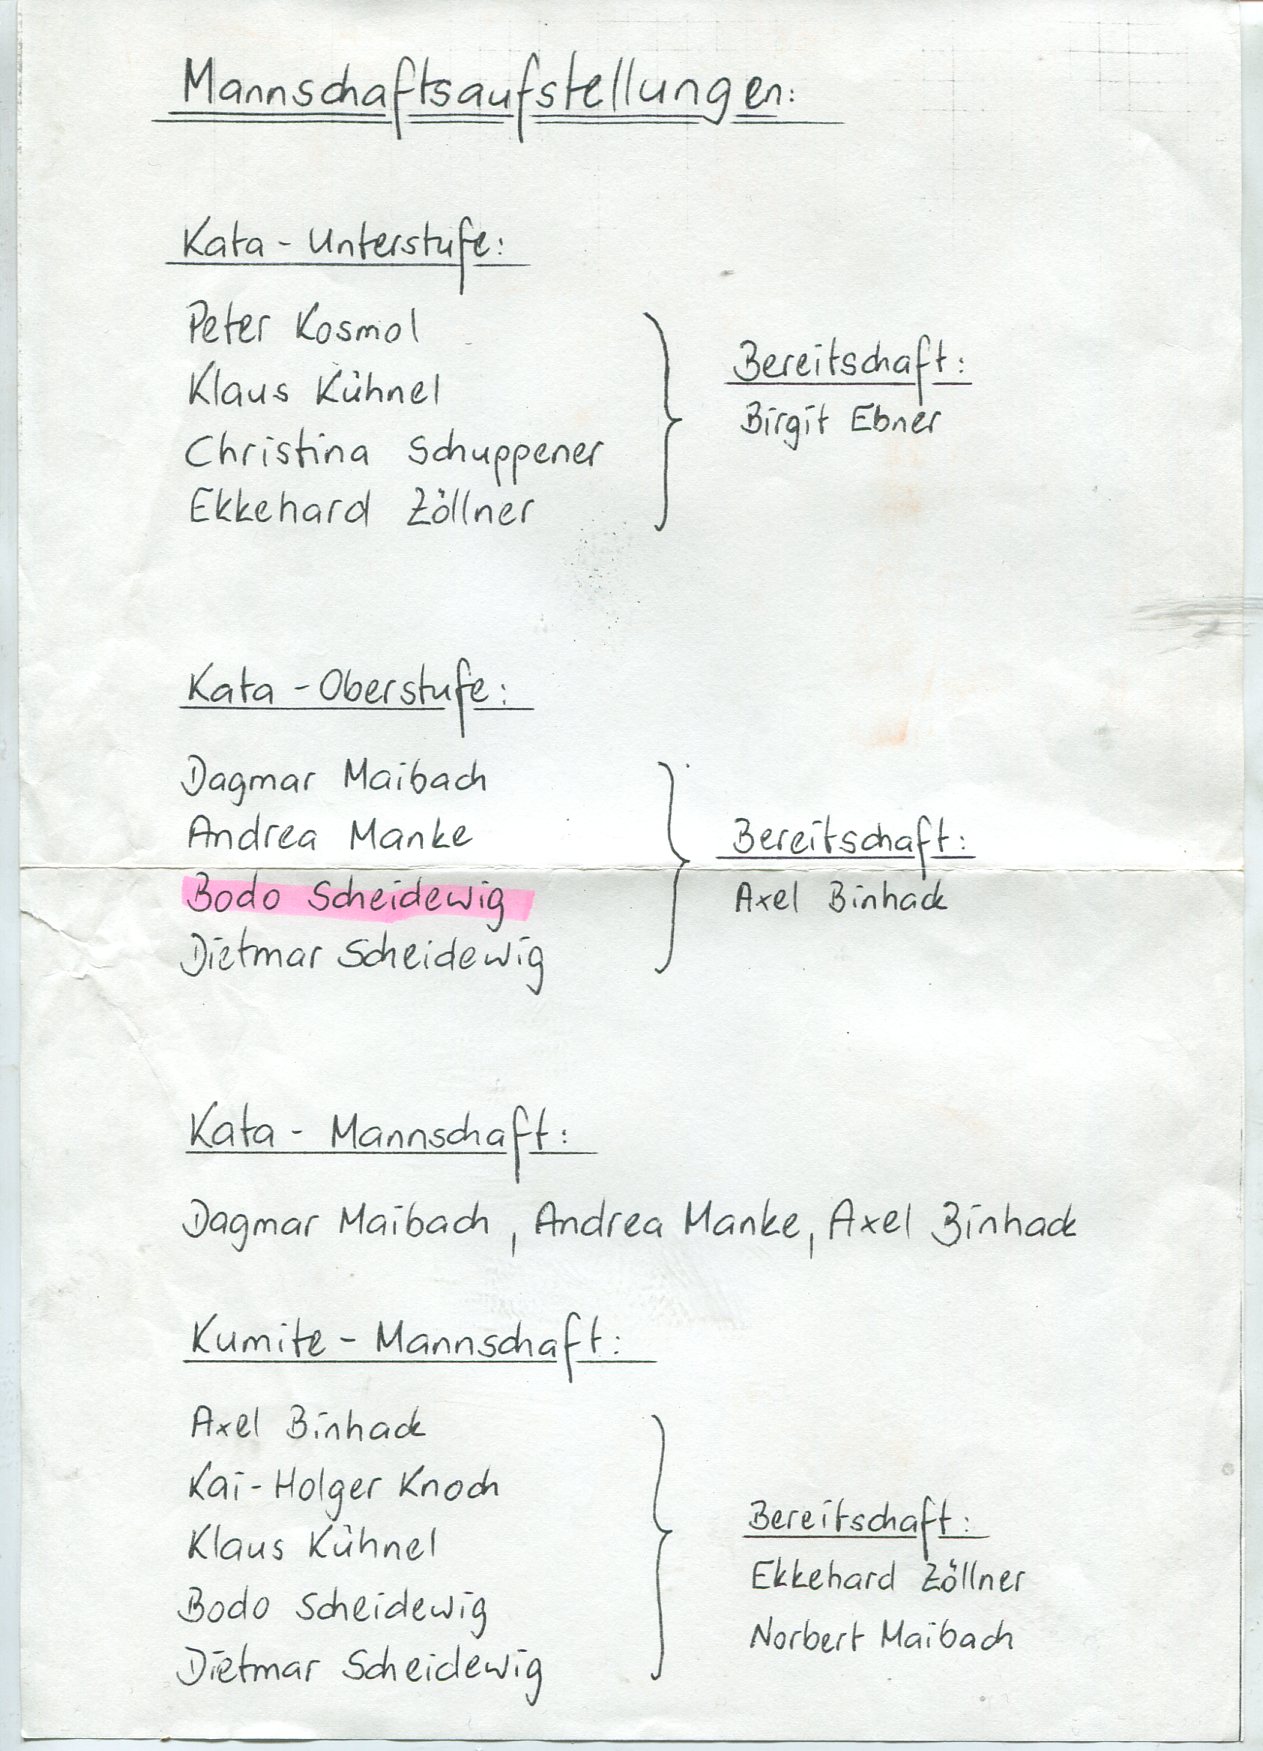 Mannschaftsaufstellungen:
Kata - Unterstufe:
Peter Kosmol
Klaus Kühnel
Christina Schuppener
Ekkehard Zöllner
Bereitschaft:
Birgit Ebner
Kata - Oberstufe:
Dagmar Maibach
Andrea Manke
Bodo Scheidewig
Dietmar Scheidewig
Bereitschaft:
Axel Binhack
Kata - Mannschaft:
Dagmar Maibach, Andrea Manke, Axel Binhack
Kumite - Mannschaft:
Axel Binhack
Kai-Holger Knoch
Klaus Kühnel
Bodo Scheidewig
Dietmar Scheidewig
Bereitschaft:
Ekkehard Zöllner
Norbert Maibach